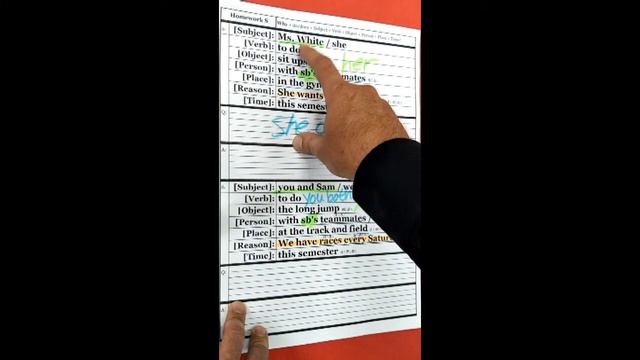 Homework 8
[Subject]: Ms. White / she
[Verb]: to do
[Object]: sit ups her
[Person]: with sb's teammates
[Place]: in the gym
[Reason]: She wants
[Time]: this semester
Q:
She
A:
[Subject]: you and Sam / we
[Verb]: to do you both
[Object]: the long jump
[Person]: with sb's teammates /
[Place]: at the track and field
[Reason]: We have races every Satur
[Time]: this semester
Q:
A: